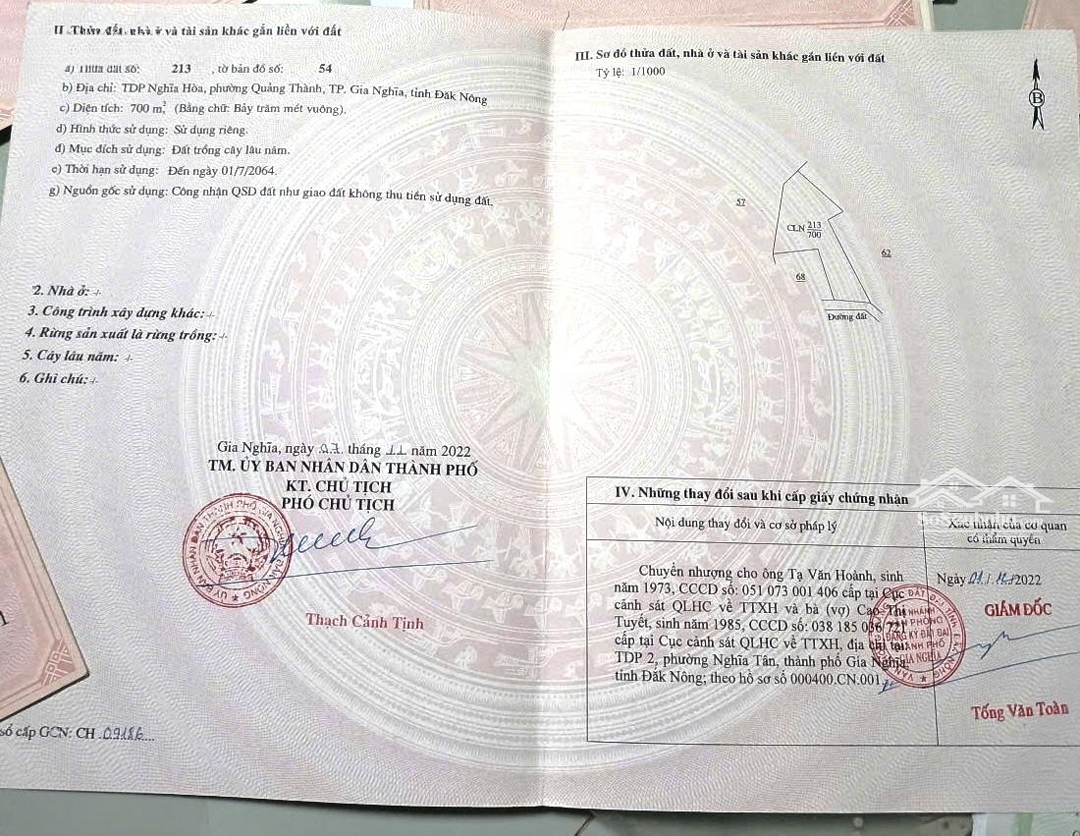 II Thửa đất, nhà ở và tài sản khác gắn liền với đất
a) Thửa đất số: 213 , tờ bản đồ số: 54
b) Địa chỉ: TDP Nghĩa Hòa, phường Quảng Thành, TP. Gia Nghĩa, tỉnh Đăk Nông
c) Diện tích: 700 m², (Bằng chữ: Bảy trăm mét vuông).
d) Hình thức sử dụng: Sử dụng riêng.
đ) Mục đích sử dụng: Đất trồng cây lâu năm.
e) Thời hạn sử dụng: Đến ngày 01/7/2064.
g) Nguồn gốc sử dụng: Công nhận QSD đất như giao đất không thu tiền sử dụng đất.
2. Nhà ở: -/-
3. Công trình xây dựng khác: -/-
4. Rừng sản xuất là rừng trồng: -/-
5. Cây lâu năm: -/-
6. Ghi chú: -/-
Gia Nghĩa, ngày 07 tháng 11 năm 2022
TM. ỦY BAN NHÂN DÂN THÀNH PHỐ
KT. CHỦ TỊCH
PHÓ CHỦ TỊCH
Thạch Cảnh Tịnh
số cấp GCN: CH 09186
III. Sơ đồ thửa đất, nhà ở và tài sản khác gắn liền với đất
Tỷ lệ: 1/1000
B
57
CLN 213
700
62
68
Đường đất
IV. Những thay đổi sau khi cấp giấy chứng nhận
Nội dung thay đổi và cơ sở pháp lý
Xác nhận của cơ quan
có thẩm quyền
Chuyển nhượng cho ông Tạ Văn Hoảnh, sinh
năm 1973, CCCD số: 051 073 001 406 cấp tại Cục
cảnh sát QLHC về TTXH và bà (vợ) Cao Thị
Tuyết, sinh năm 1985, CCCD số: 038 185 036 721
cấp tại Cục cảnh sát QLHC về TTXH, địa chỉ tại
TDP 2, phường Nghĩa Tân, thành phố Gia Nghĩa,
tỉnh Đăk Nông; theo hồ sơ số 000400.CN.001
Ngày 01/12/2022
GIÁM ĐỐC
Tống Văn Toàn